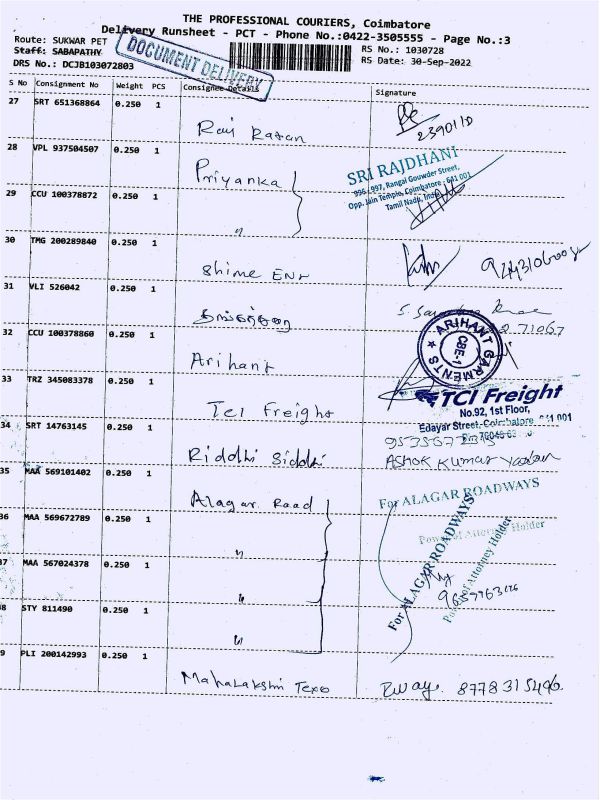 THE PROFESSIONAL COURIERS, Coimbatore
Delivery Runsheet - PCT - Phone No.:0422-3505555 - Page No.:3
Route: SUKWAR PET
RS No.: 1030728
Staff: SABAPATHY
DOCUMENT DELIVERY
RS Date: 30-Sep-2022
DRS No.: DCJB103072803
S No Consignment No Weight PCS Consignee Details Signature
27 SRT 651368864 0.250 1
Raj Ratan
2390110
28 VPL 937504507 0.250 1
Priyanka
SRI RAJDHANI
996 - 997, Rangai Gouwder Street,
Opp. Jain Temple, Coimbatore - 641 001
Tamil Nadu, India
29 CCU 100378872 0.250 1
"
30 TMG 200289840 0.250 1
Shime Ent
31 VLI 526042 0.250 1
71067
32 CCU 100378860 0.250 1
Arihant
ARIHANT GARMENTS
CBE-1
33 TRZ 345083378 0.250 1
Tci Freight
TCI Freight
No.92, 1st Floor,
Edayar Street, Coimbatore - 641 001
34 SRT 14763145 0.250 1
Riddhi Siddhi
ASHOK KUMAR Yadav
35 MAA 569101402 0.250 1
Alagar Road
For ALAGAR ROADWAYS
Power of Attorney Holder
36 MAA 569672789 0.250 1
"
For ALAGAR ROADWAYS
Power of Attorney Holder
37 MAA 567024378 0.250 1
"
8 STY 811490 0.250 1
"
9 PLI 200142993 0.250 1
Mahalakshmi Texo
8778315496